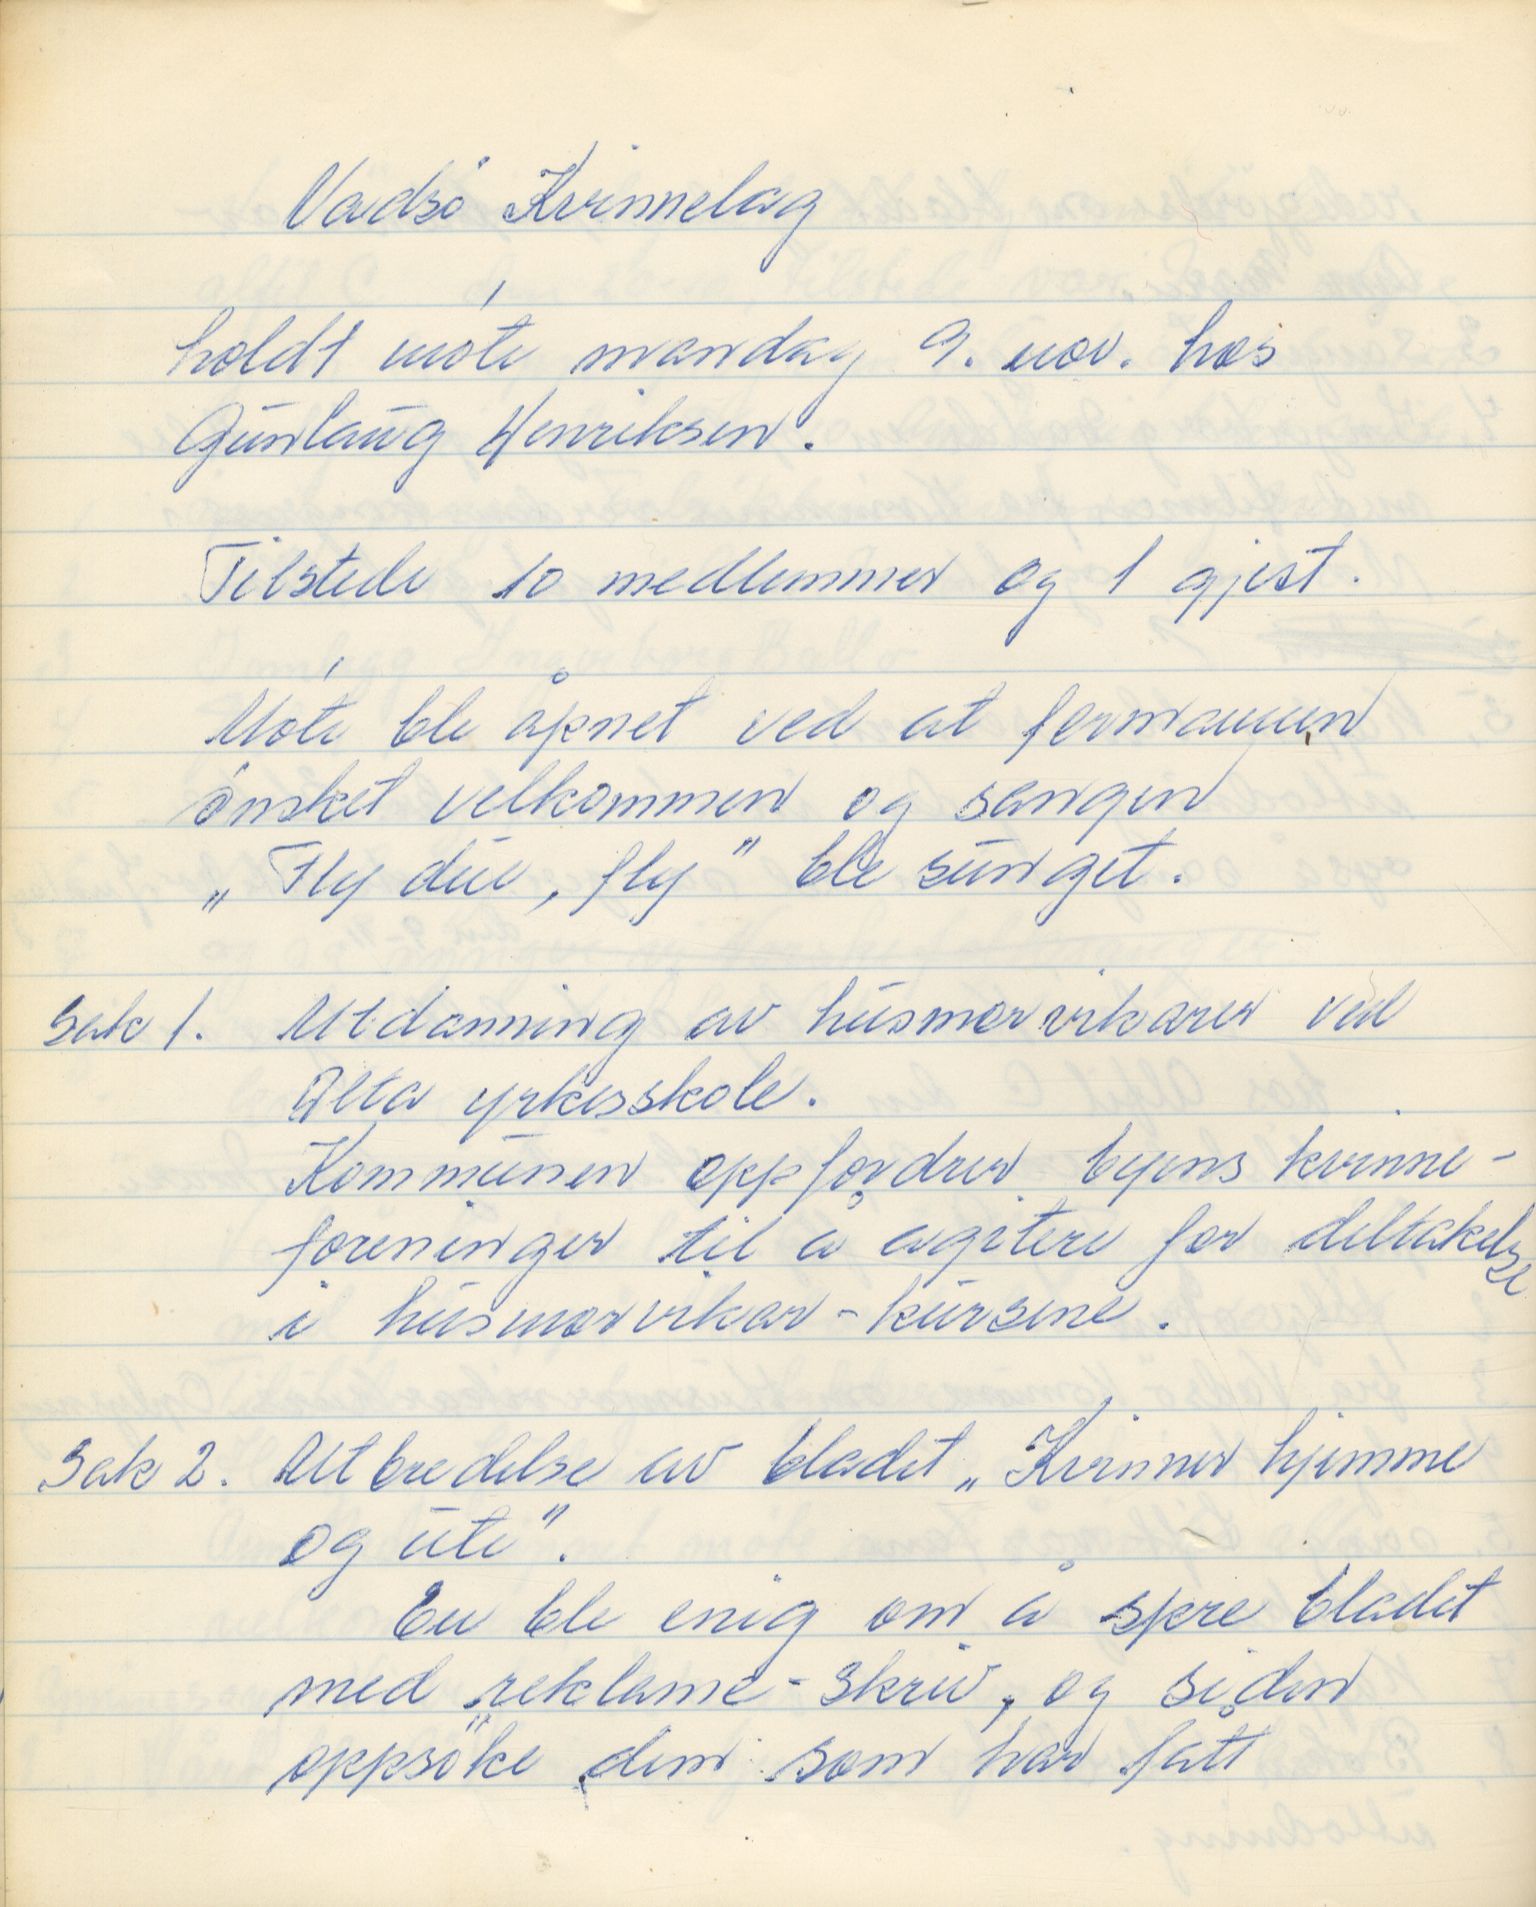 Vadsö Kvinnelag
holdt möte mandag 9. nov. hos
Gunlaug Henriksen.
Tilstede 10 medlemmer og 1 gjest.
Möte ble åpnet ved at formannen
önsket velkommen og sangen
„Fly due, fly" ble sunget.
Sak 1. Utdanning av husmorvikarer ved
Alta yrkesskole.
Kommunen oppfordrer byens kvinne-
foreninger til å agitere for deltakelse
i husmorvikar-kursene.
Sak 2. Utbredelse av bladet „Kvinner hjemme
og ute".
En ble enig om å spre bladet
med reklame-skriv, og siden
oppsöke dem som har fått